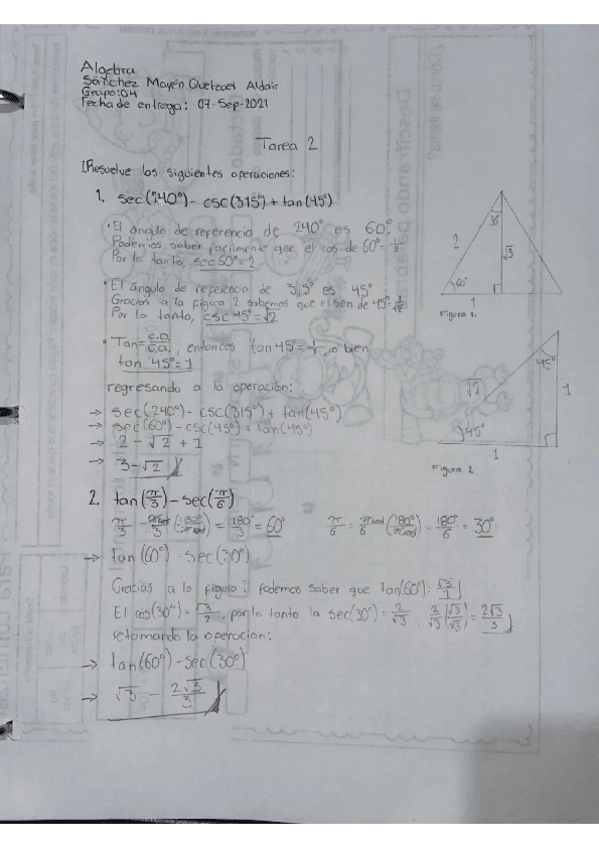 Algebra
Sánchez Mayén Quetzael Aldair
Grupo:04
Fecha de entrega: 07-Sep-2021
Tarea 2
Resuelve los siguientes operaciones:
1. sec(240°) - csc(315°) + tan(45°)
• El ángulo de referencia de 240° es 60°.
Podemos saber facilmente que el cos de 60°=½
Por lo tanto, sec60°=2
• El ángulo de referencia de 315° es 45°
Gracias a la figura 2 sabemos que el sen de 45°=1/√2
Por lo tanto, csc 45°=√2
• Tan= c.o./c.a., entonces tan 45°=1/1, o bien
tan 45°=1
regresando a la operación:
→ sec(240°) - csc(315°) + tan(45°)
→ sec(60°) - csc(45°) + tan(45°)
→ 2 - √2 + 1
→ 3 - √2
30°
2
√3
60°
1
Figura 1.
45°
√2
1
45°
1
Figura 2
2. tan(π/3) - sec(π/6)
π/3 = π rad/3 (180°/π rad) = 180°/3 = 60°
π/6 = π rad/6 (180°/π rad) = 180°/6 = 30°
→ tan(60°) - sec(30°)
Gracias a la figura 1 podemos saber que tan(60°)= √3/1
El cos(30°)= √3/2, por lo tanto la sec(30°)= 2/√3 2/√3 (√3/√3) = 2√3/3
retomando la operacion:
→ tan(60°) - sec(30°)
→ √3 - 2√3/3